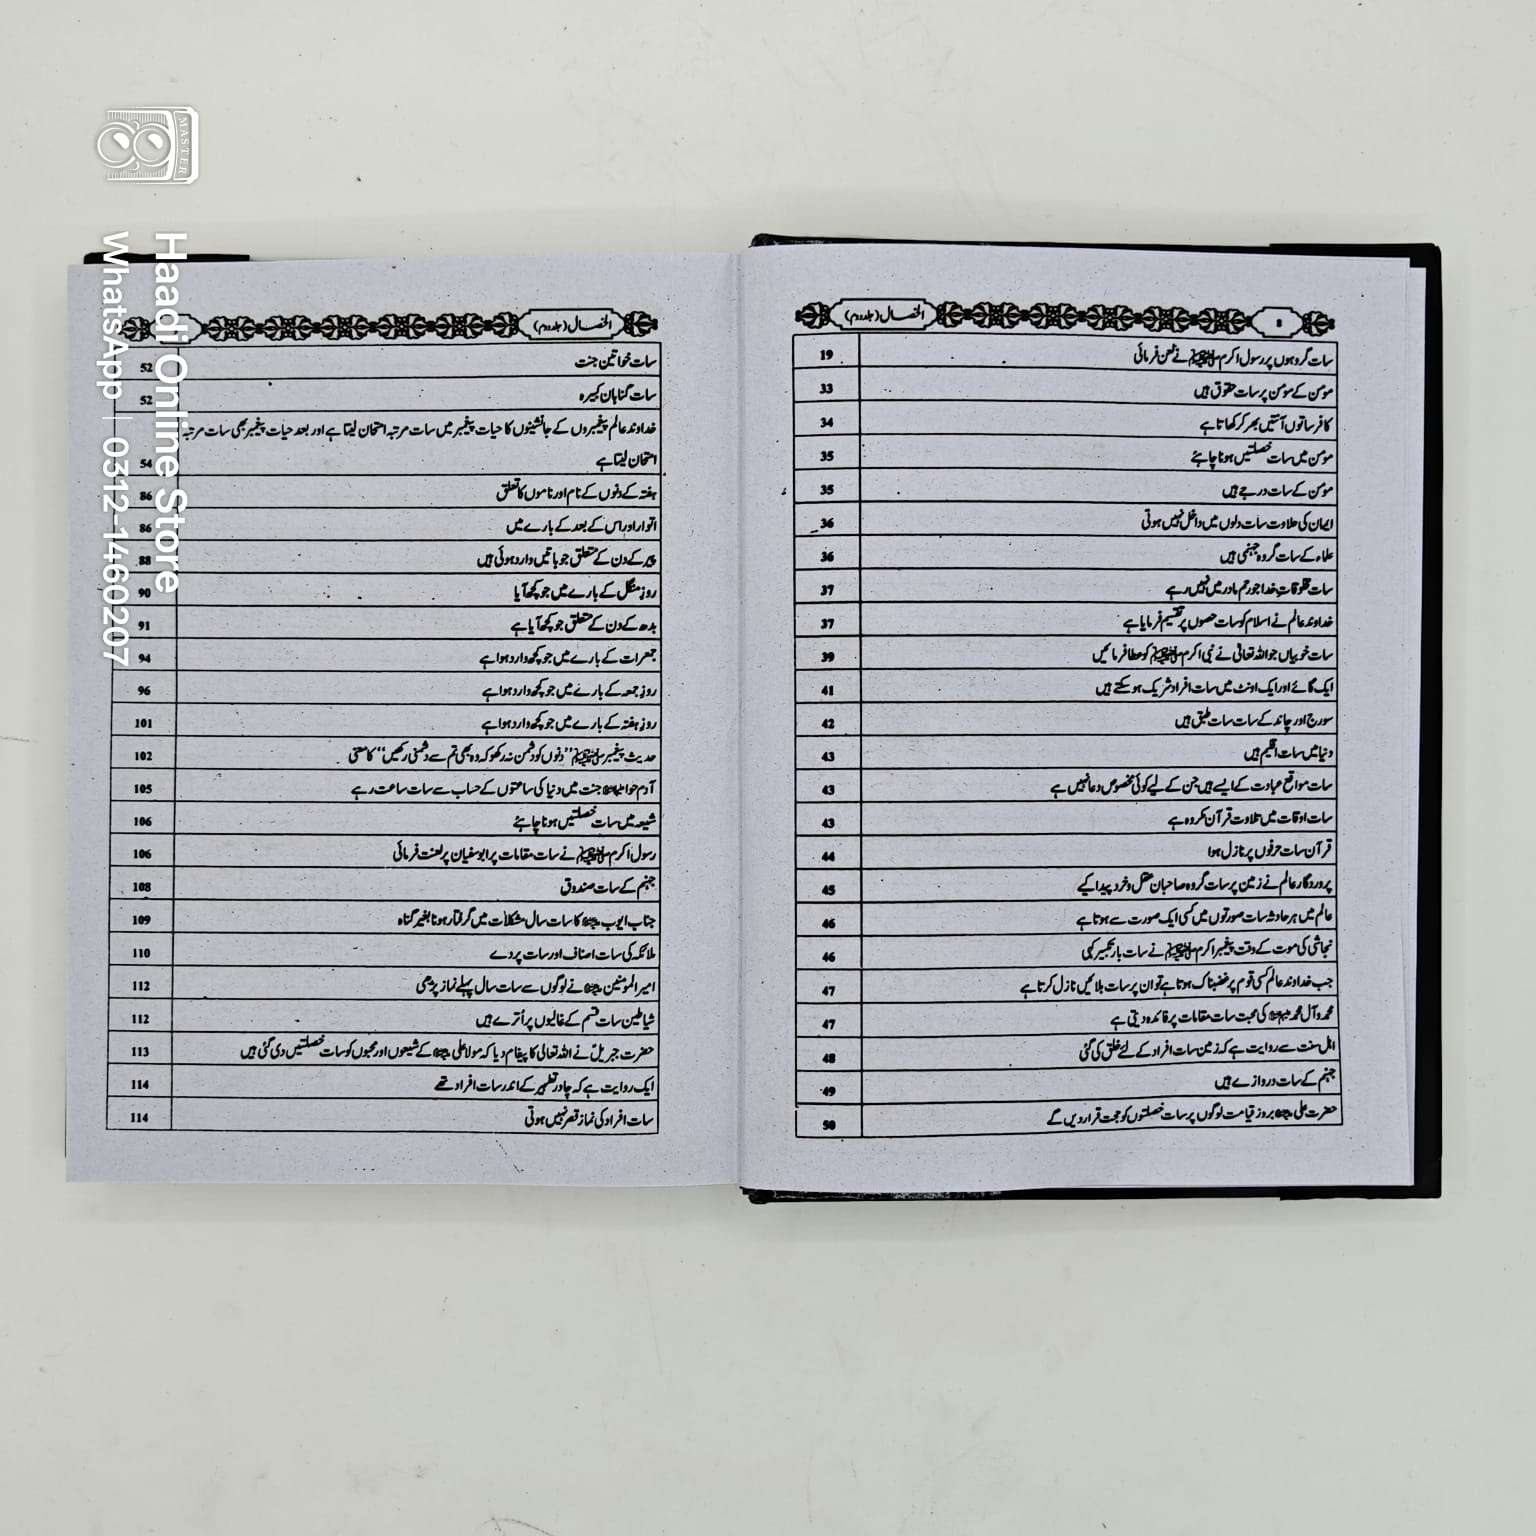 8
الخصال (جلد دوم)
سات گروہوں پر رسول اکرم ﷺ نے لعن فرمائی 19
مومن کے مومن پر سات حقوق ہیں 33
کافر ساتوں آنتیں بھر کر کھاتا ہے 34
مومن میں سات خصلتیں ہونا چاہئے 35
مومن کے سات درجے ہیں 35
ایمان کی حلاوت سات دلوں میں داخل نہیں ہوتی 36
علماء کے سات گروہ جہنمی ہیں 36
سات مخلوقات خدا جو رحم مادر میں نہیں رہے 37
خداوند عالم نے اسلام کو سات حصوں پر تقسیم فرمایا ہے 37
سات خوبیاں جو اللہ تعالیٰ نے نبی اکرم ﷺ کو عطا فرمائیں 39
ایک گائے اور ایک اونٹ میں سات افراد شریک ہو سکتے ہیں 41
سورج اور چاند کے سات سات طبق ہیں 42
دنیا میں سات اقلیم ہیں 43
سات مواقع عبادت کے ایسے ہیں جن کے لیے کوئی مخصوص دعا نہیں ہے 43
سات اوقات میں تلاوت قرآن مکروہ ہے 43
قرآن سات حرفوں پر نازل ہوا 44
پروردگار عالم نے زمین پر سات گروہ صاحبان عقل و خرد پیدا کیے 45
عالم میں ہر حادثہ سات صورتوں میں کسی ایک صورت سے ہوتا ہے 46
نجاشی کی موت کے وقت پیغمبر اکرم ﷺ نے سات بار تکبیر کہی 46
جب خداوند عالم کسی قوم پر غضبناک ہوتا ہے تو ان پر سات بلائیں نازل کرتا ہے 47
محمد و آل محمد کی محبت سات مقامات پر فائدہ دیتی ہے 47
اہل سنت سے روایت ہے کہ زمین سات افراد کے لئے خلق کی گئی 48
جہنم کے سات دروازے ہیں 49
حضرت علی بروز قیامت لوگوں پر سات خصلتوں کو حجت قرار دیں گے 50
الخصال (جلد دوم)
سات خواتین جنت 52
سات گناہان کبیرہ 52
خداوند عالم پیغمبروں کے جانشینوں کا حیات پیغمبر میں سات مرتبہ امتحان لیتا ہے اور بعد حیات پیغمبر بھی سات مرتبہ
امتحان لیتا ہے 54
ہفتہ کے دنوں کے نام اور ناموں کا تعلق 86
اتوار اور اس کے بعد کے بارے میں 86
پیر کے دن کے متعلق جو باتیں وارد ہوئی ہیں 88
روز منگل کے بارے میں جو کچھ آیا 90
بدھ کے دن کے متعلق جو کچھ آیا ہے 91
جمعرات کے بارے میں جو کچھ وارد ہوا ہے 94
روز جمعہ کے بارے میں جو کچھ وارد ہوا ہے 96
روز ہفتہ کے بارے میں جو کچھ وارد ہوا ہے 101
حدیث پیغمبر ﷺ "دنوں کو دشمن نہ رکھو کہ وہ بھی تم سے دشمنی رکھیں" کا معنی 102
آدم حوا جنت میں دنیا کی ساعتوں کے حساب سے سات ساعت رہے 105
شیعہ میں سات خصلتیں ہونا چاہئے 106
رسول اکرم ﷺ نے سات مقامات پر ابوسفیان پر لعنت فرمائی 106
جہنم کے سات صندوق 108
جناب ایوب کا سات سال مشکلات میں گرفتار ہونا بغیر گناہ 109
ملائکہ کی سات اصناف اور سات پردے 110
امیر المومنین نے لوگوں سے سات سال پہلے نماز پڑھی 112
شیاطین سات قسم کے غالیوں پر اترے ہیں 112
حضرت جبریل نے اللہ تعالیٰ کا پیغام دیا کہ مولا علی کے شیعوں اور محبوں کو سات خصلتیں دی گئی ہیں 113
ایک روایت ہے کہ چادر تطہیر کے اندر سات افراد تھے 114
سات افراد کی نماز قصر نہیں ہوتی 114
MASTER
Haadi Online Store
WhatsApp | 0312-1460207